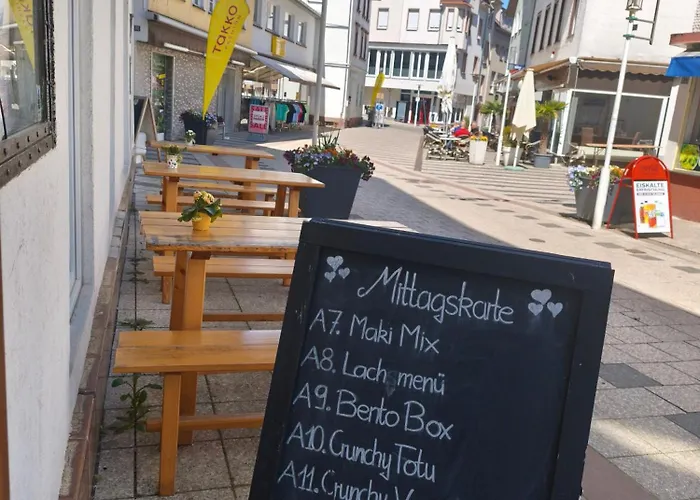 TAKKO
FASHION
Mittagskarte
A7. Maki Mix
A8. Lachsmenü
A9. Bento Box
A10. Crunchy Totu
A11. Crunchy
EISKALTE
SALE